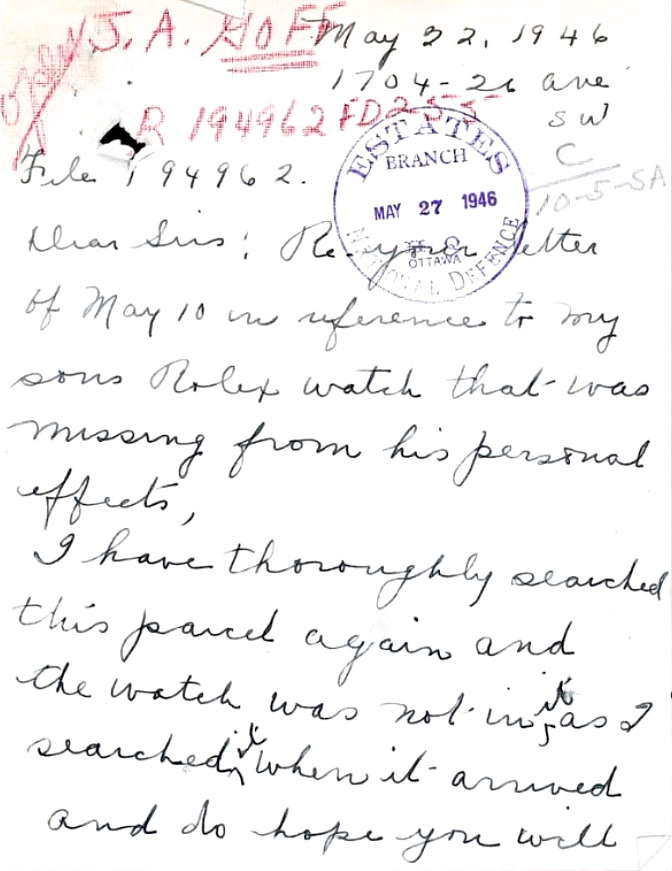 J. A. GOFF
May 22, 1946
1704-26 ave
SW
R 194962 FD 255
C
10-5-SA
File 194962.
ESTATES
BRANCH
MAY 27 1946
OTTAWA
NATIONAL DEFENCE
Dear Sirs: Re. your letter
of May 10 in reference to my
sons Rolex watch that was
missing from his personal
effects,
I have thoroughly searched
this parcel again and
the watch was not in it as I
searched it when it arrived
and do hope you will